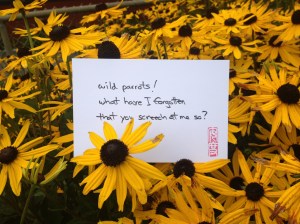 wild parrots!
what have I forgotten
that you screech at me so?